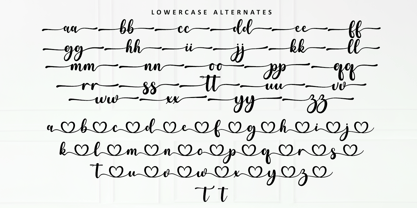 LOWERCASE ALTERNATES
aa bb cc dd ee ff
gg hh ii jj kk ll
mm nn oo pp qq
rr ss tt uu vv
ww xx yy zz
a♡b♡c♡d♡e♡f♡g♡h♡i♡j♡
k♡l♡m♡n♡o♡p♡q♡r♡s♡
t♡u♡v♡w♡x♡y♡z♡
t t